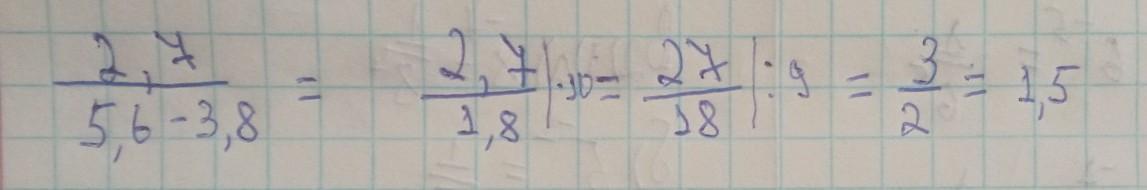 2,7/(5,6-3,8) = 2,7/1,8 |·10 = 27/18 |:9 = 3/2 = 1,5